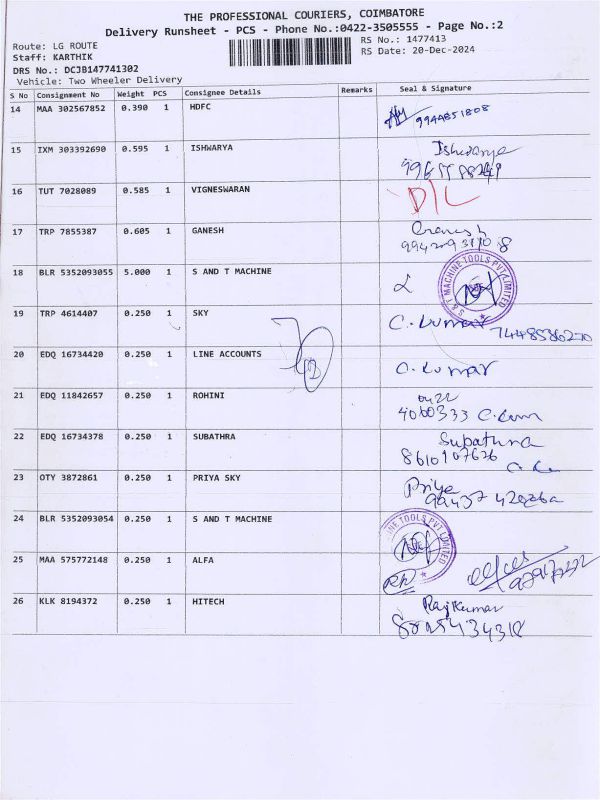 THE PROFESSIONAL COURIERS, COIMBATORE
Delivery Runsheet - PCS - Phone No.:0422-3505555 - Page No.:2
Route: LG ROUTE
RS No.: 1477413
Staff: KARTHIK
RS Date: 20-Dec-2024
DRS No.: DCJB147741302
Vehicle: Two Wheeler Delivery
S No Consignment No Weight PCS Consignee Details Remarks Seal & Signature
14 MAA 302567852 0.390 1 HDFC 9944851808
15 IXM 303392690 0.595 1 ISHWARYA Ishwarya
16 TUT 7028089 0.585 1 VIGNESWARAN D/L
17 TRP 7855387 0.605 1 GANESH Ganesh
18 BLR 5352093055 5.000 1 S AND T MACHINE S & T MACHINE TOOLS PVT LIMITED
19 TRP 4614407 0.250 1 SKY C. Kumar 7448536270
20 EDQ 16734420 0.250 1 LINE ACCOUNTS C. Kumar
21 EDQ 11842657 0.250 1 ROHINI 0422
4060333
22 EDQ 16734378 0.250 1 SUBATHRA Subathra
8610107626
23 OTY 3872861 0.250 1 PRIYA SKY Priya
24 BLR 5352093054 0.250 1 S AND T MACHINE INE TOOLS PVT LIMITED
25 MAA 575772148 0.250 1 ALFA
26 KLK 8194372 0.250 1 HITECH Rajkumar